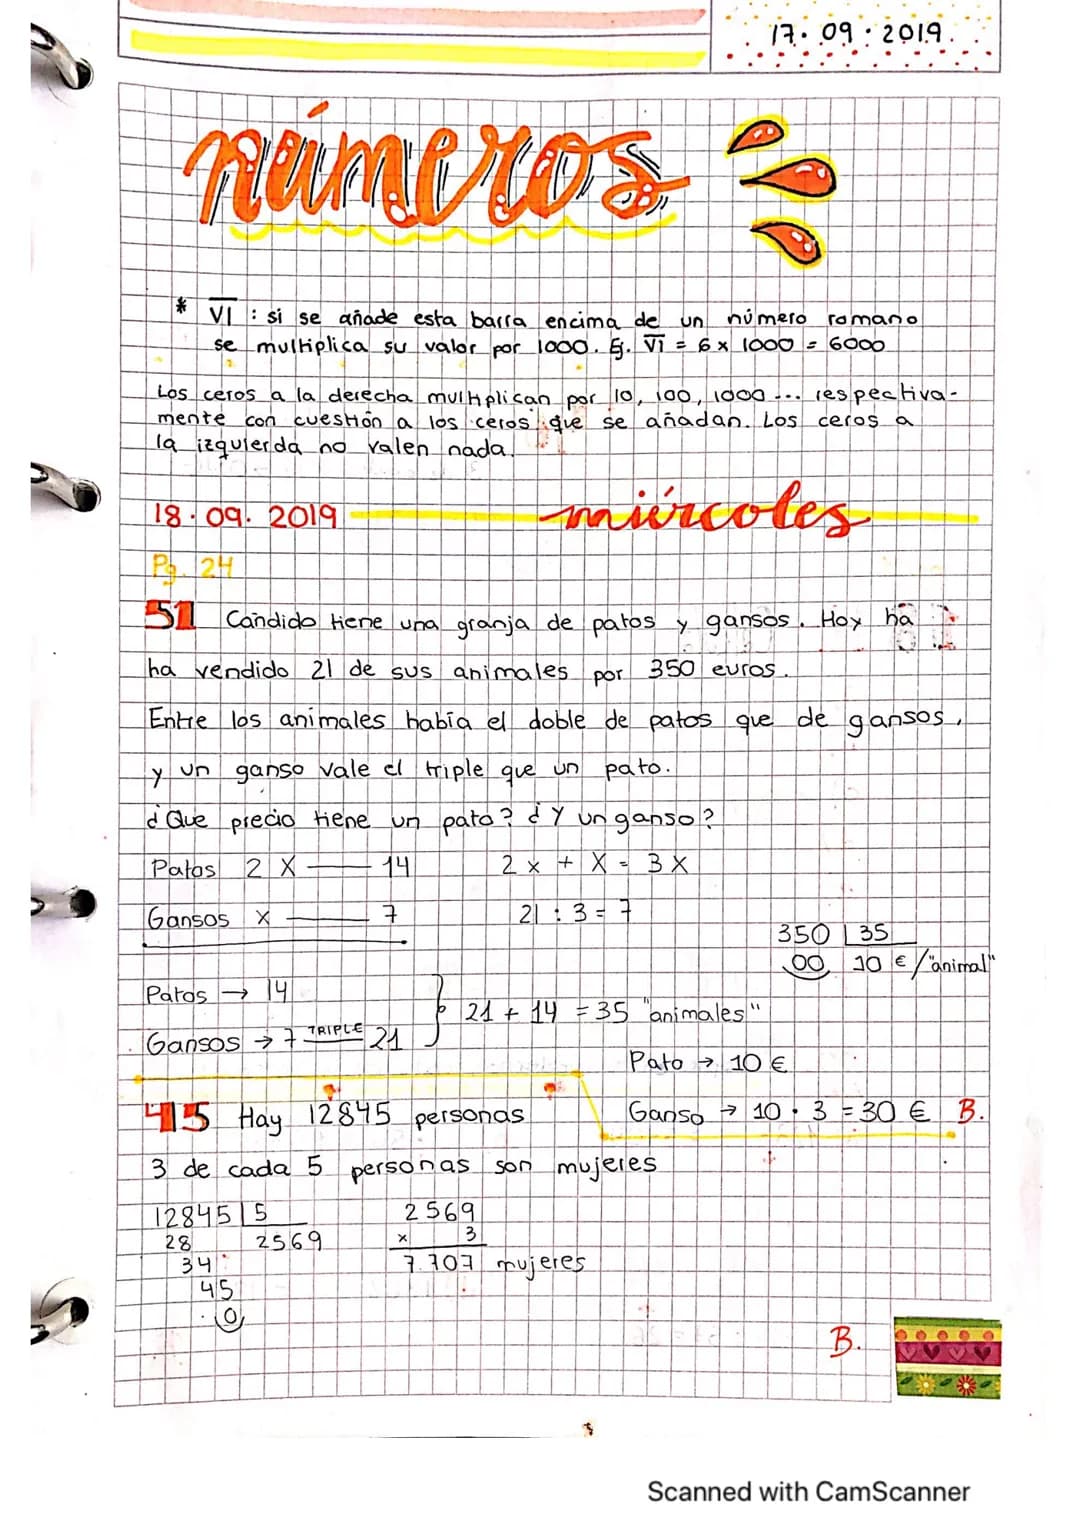 17.09.2019
números
* V̅I̅ : si se añade esta barra encima de un número romano
se multiplica su valor por 1000. Ej. V̅I̅ = 6 x 1000 = 6000
Los ceros a la derecha multiplican por 10, 100, 1000 ... respectiva-
mente con cuestión a los ceros que se añadan. Los ceros a
la izquierda no valen nada.
18.09.2019 miércoles
Pg. 24
51 Candido tiene una granja de patos y gansos. Hoy ha
ha vendido 21 de sus animales por 350 euros.
Entre los animales había el doble de patos que de gansos,
y un ganso vale el triple que un pato.
¿Que precio tiene un pato? ¿Y un ganso?
Patos 2 X — 14 2 x + X = 3 X
Gansos X — 7 21 : 3 = 7
350 | 35
00 10 € / "animal"
Patos → 14
21 + 14 = 35 "animales"
Gansos → 7 TRIPLE 21
Pato → 10 €
Ganso → 10 · 3 = 30 € B.
45 Hay 12845 personas
3 de cada 5 personas son mujeres
12845 | 5 2569
28 2569 x 3
34 7.707 mujeres
45
0
B.
Scanned with CamScanner